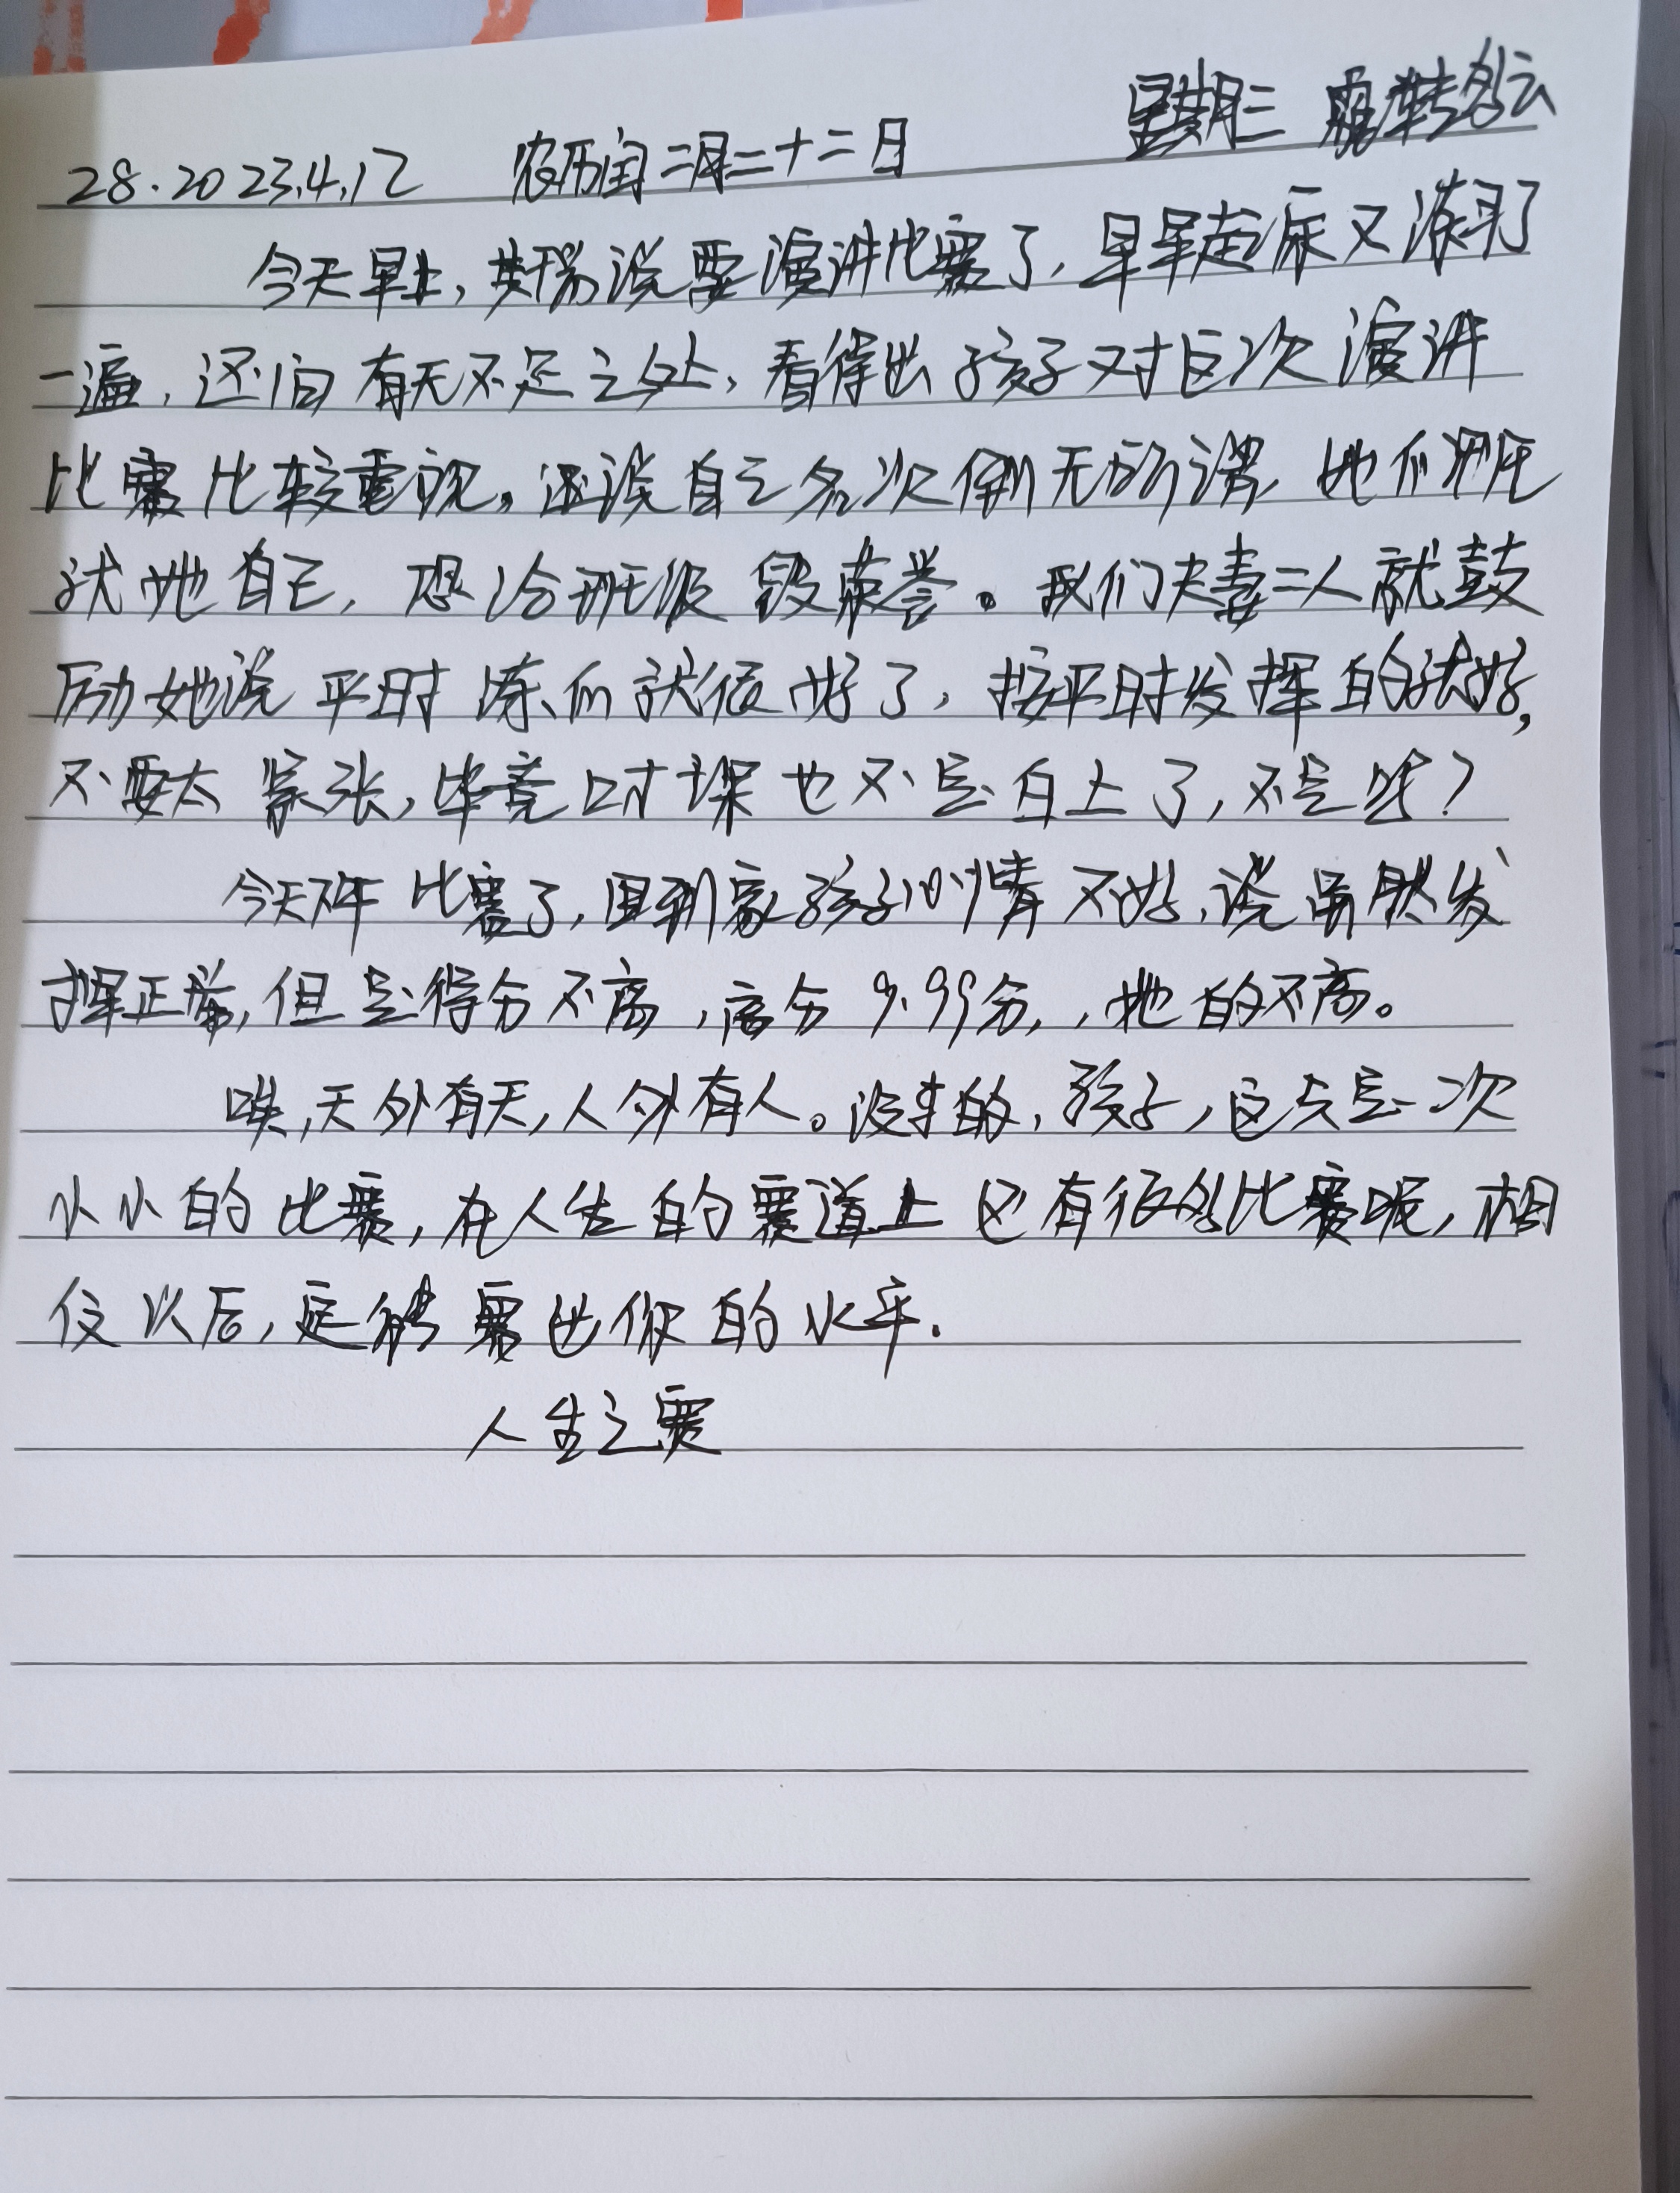 28.2023.4.12 农历闰二月二十二日 星期三 霾转多云
今天早上,英瑞说要演讲比赛了,早早起床又练习了
一遍,还问有无不足之处,看得出孩子对这次演讲
比赛比较重视。还说自己名次倒无所谓,她们班
就她自己,想给班级争荣誉。我们夫妻二人就鼓
励她说平时练的就很好了,按平时发挥的就好,
不要太紧张,毕竟口才课也不是白上了,不是吗?
今天下午比赛了,回到家孩子心情不好,说虽然发
挥正常,但是得分不高,高分9.99分,她的不高。
唉,天外有天,人外有人。没事的,孩子,这只是一次
小小的比赛,在人生的赛道上还有很多比赛呢,相
信以后,定能赛出你的水平.
人生之赛